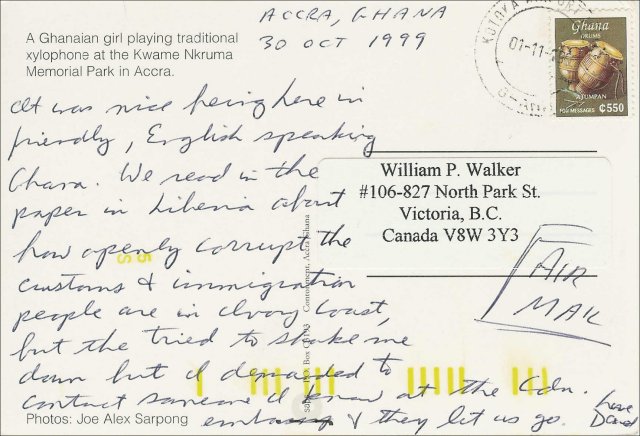 A Ghanaian girl playing traditional
xylophone at the Kwame Nkruma
Memorial Park in Accra.
ACCRA, GHANA
30 OCT 1999
It was nice being here in
friendly, English speaking
Ghana. We read in the
paper in Liberia about
how openly corrupt the
customs & immigration
people are in Ivory Coast,
but the tried to shake me
down but I demanded to
contact someone I know at the Cdn.
embassy & they let us go.
Love
David
Photos: Joe Alex Sarpong
Ghana
DRUMS
ATUMPAN
FOR MESSAGES
₵550
KOTOKA
01-11-
William P. Walker
#106-827 North Park St.
Victoria, B.C.
Canada V8W 3Y3
AIR
MAIL
Box
Cantonment, Accra Ghana
S 5